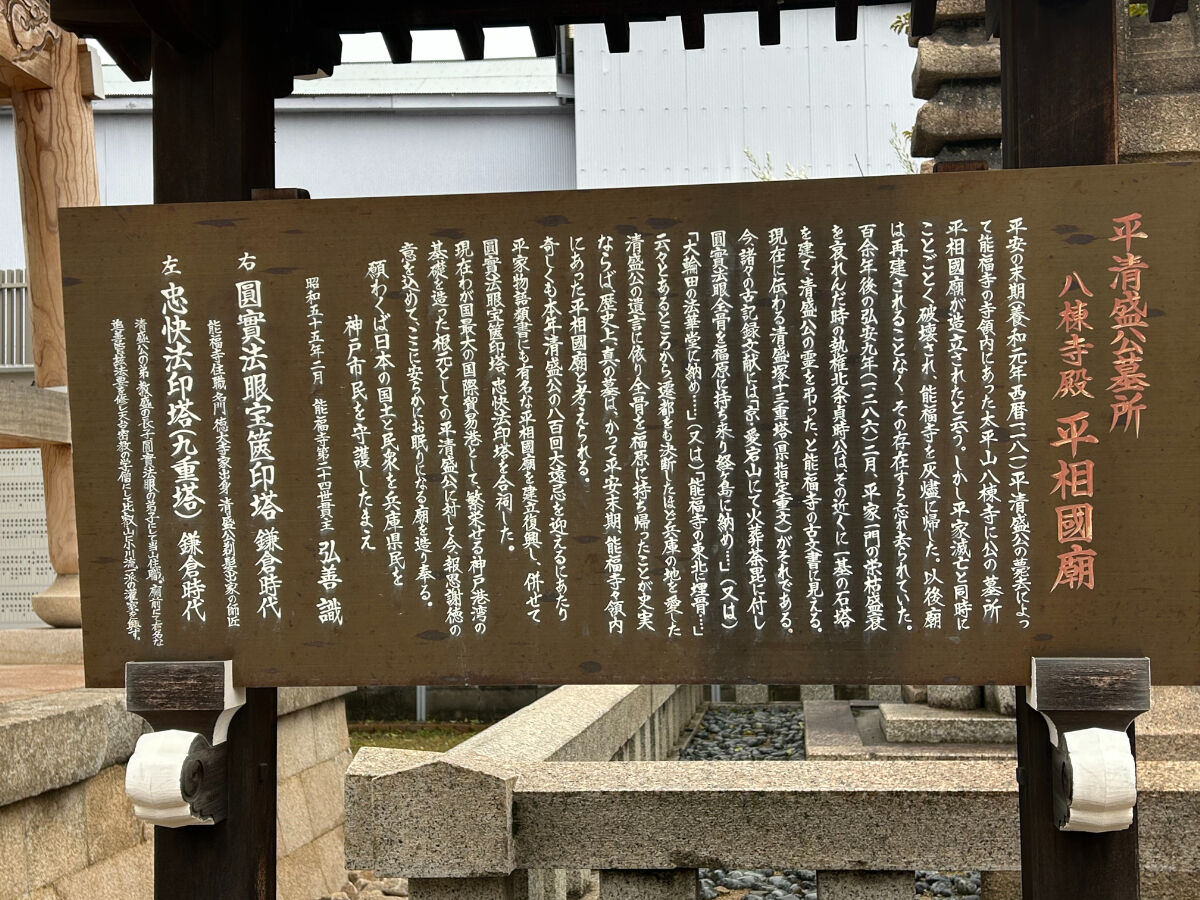 平清盛公墓所
八棟寺殿 平相國廟
平安の末期(養和元年 西暦一一八一)平清盛公の薨去によっ
て能福寺の寺領内にあった太平山八棟寺に公の墓所
平相國廟が造立されたと云う。しかし平家滅亡と同時に
ことごとく破壊され、能福寺も灰燼に帰した。以後廟
は再建されることなく、その存在すら忘れ去られていた。
百余年後の弘安九年(一二八六)二月、平家一門の栄枯盛衰
を哀れんだ時の執権北条貞時公は、その近くに一基の石塔
を建て清盛公の霊を弔った、と能福寺の古文書に見える。
現在に伝わる清盛塚十三重塔(県指定重文)がそれである。
今諸々の古記録文献には「京・愛宕山にて火葬茶毘に付し
圓實法眼全骨を福原に持ち来り経ヶ島に納め…」(又は)
「大輪田の法華堂に納め…」(又は)「能福寺の東北に埋骨…」
云々とあるところから遷都をも決断したほど兵庫の地を愛した
清盛公の遺言に依り全骨を福原に持ち帰ったことが史実
ならば、歴史上真の墓は、かって平安末期、能福寺々領内
にあった平相國廟と考えられる。
奇しくも本年清盛公の八百回大遠忌を迎えるにあたり
平家物語類書にも有名な平相國廟を建立復興し、併せて
圓實法眼宝篋印塔、忠快法印塔を合祀した。
現在わが国最大の国際貿易港として、繁栄せる神戸港湾の
基礎を造った根元としての平清盛公に対して今、報恩謝徳の
意を込めて、ここに安らかにお眠りになる廟を造り奉る。
願わくば日本の国土と民衆を兵庫県民を
神戸市民を守護したまえ
昭和五十五年二月 能福寺第二十四世貫主 弘善 識
右 圓實法眼宝篋印塔 鎌倉時代
能福寺住職 名門・徳大寺家出身 清盛公剃髪出家の師匠
左 忠快法印塔(九重塔) 鎌倉時代
清盛公の弟、教盛の長子圓實法眼の弟子にして当山住職。廟前にて有名な